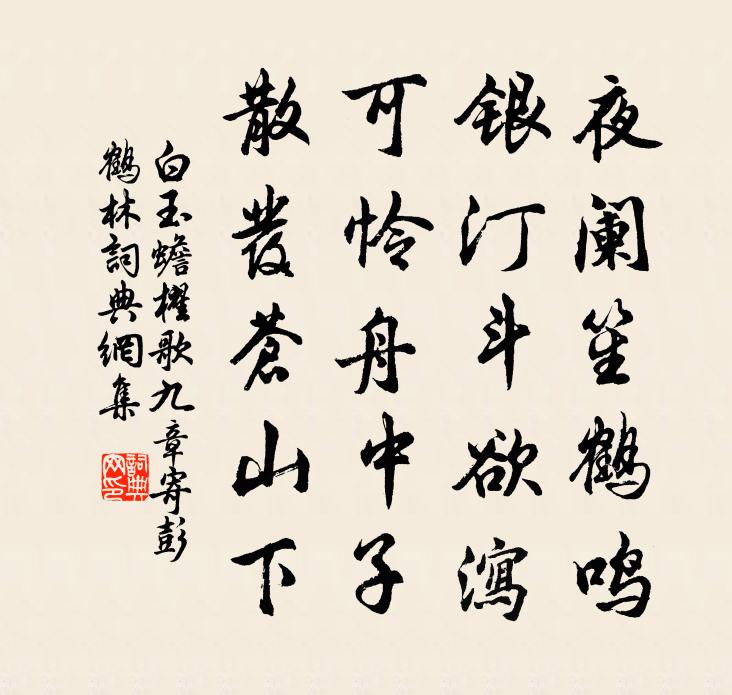 夜阑笙鹤鸣
银汀斗欲瀉
可怜舟中子
散發蒼山下
白玉蟾櫂歌九章寄彭
鹤林詞典網集
詞典
网印